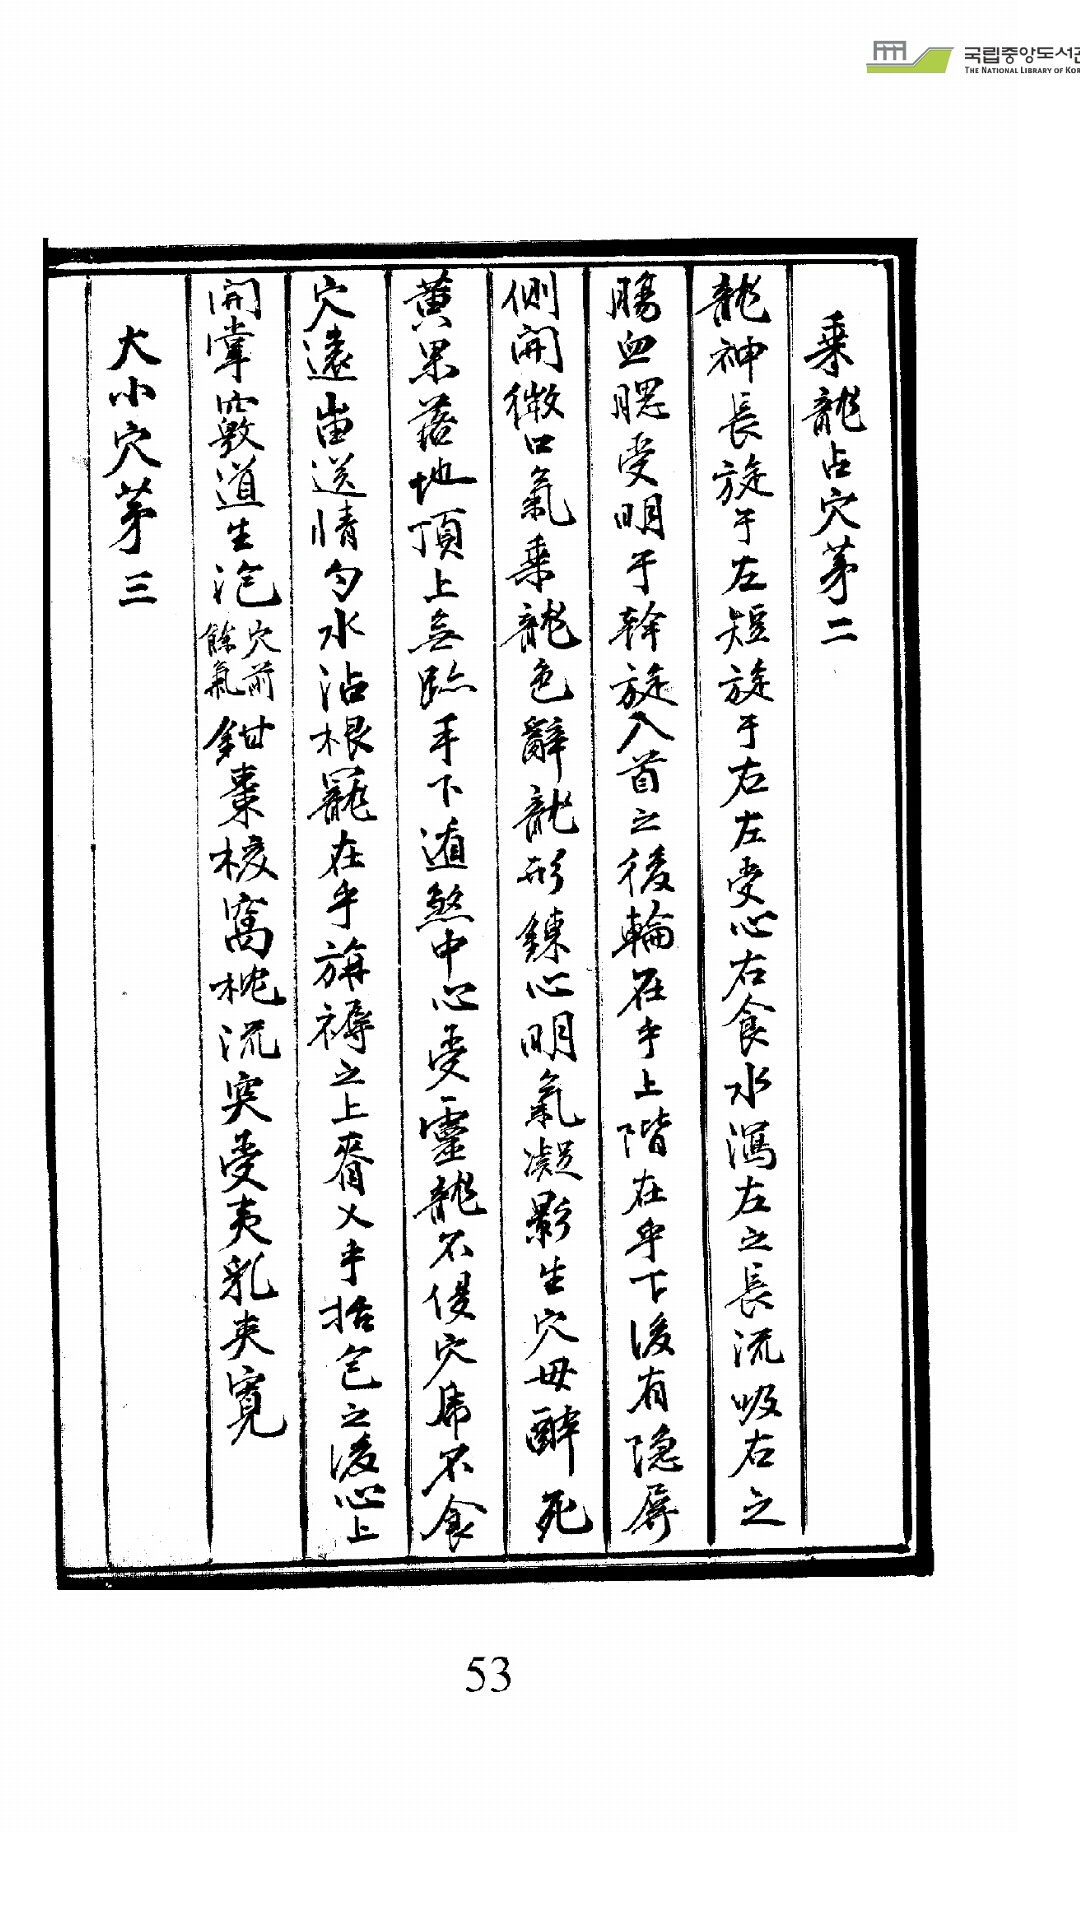 국립중앙도서관
THE NATIONAL LIBRARY OF KOR
乘龍占穴第二
龍神長旋于左短旋于右左受心右食水瀉左之長流吸右之
腸血腮受明于幹旋入首之後輪在乎上階在乎下後有隐屏
側開微口氣乘龍色辭龍形鍊心明氣凝影生穴母醉死
黃果落地頂上無跡手下遁煞中心受靈龍不侵穴席不食
穴遠峀送情勺水沾根羅在乎旃褥之上脊乂乎括包之後心上
開掌竅道生泡穴前餘氣鉗棗棱窩枕流突受夷乳夾寬
大小穴第三
53